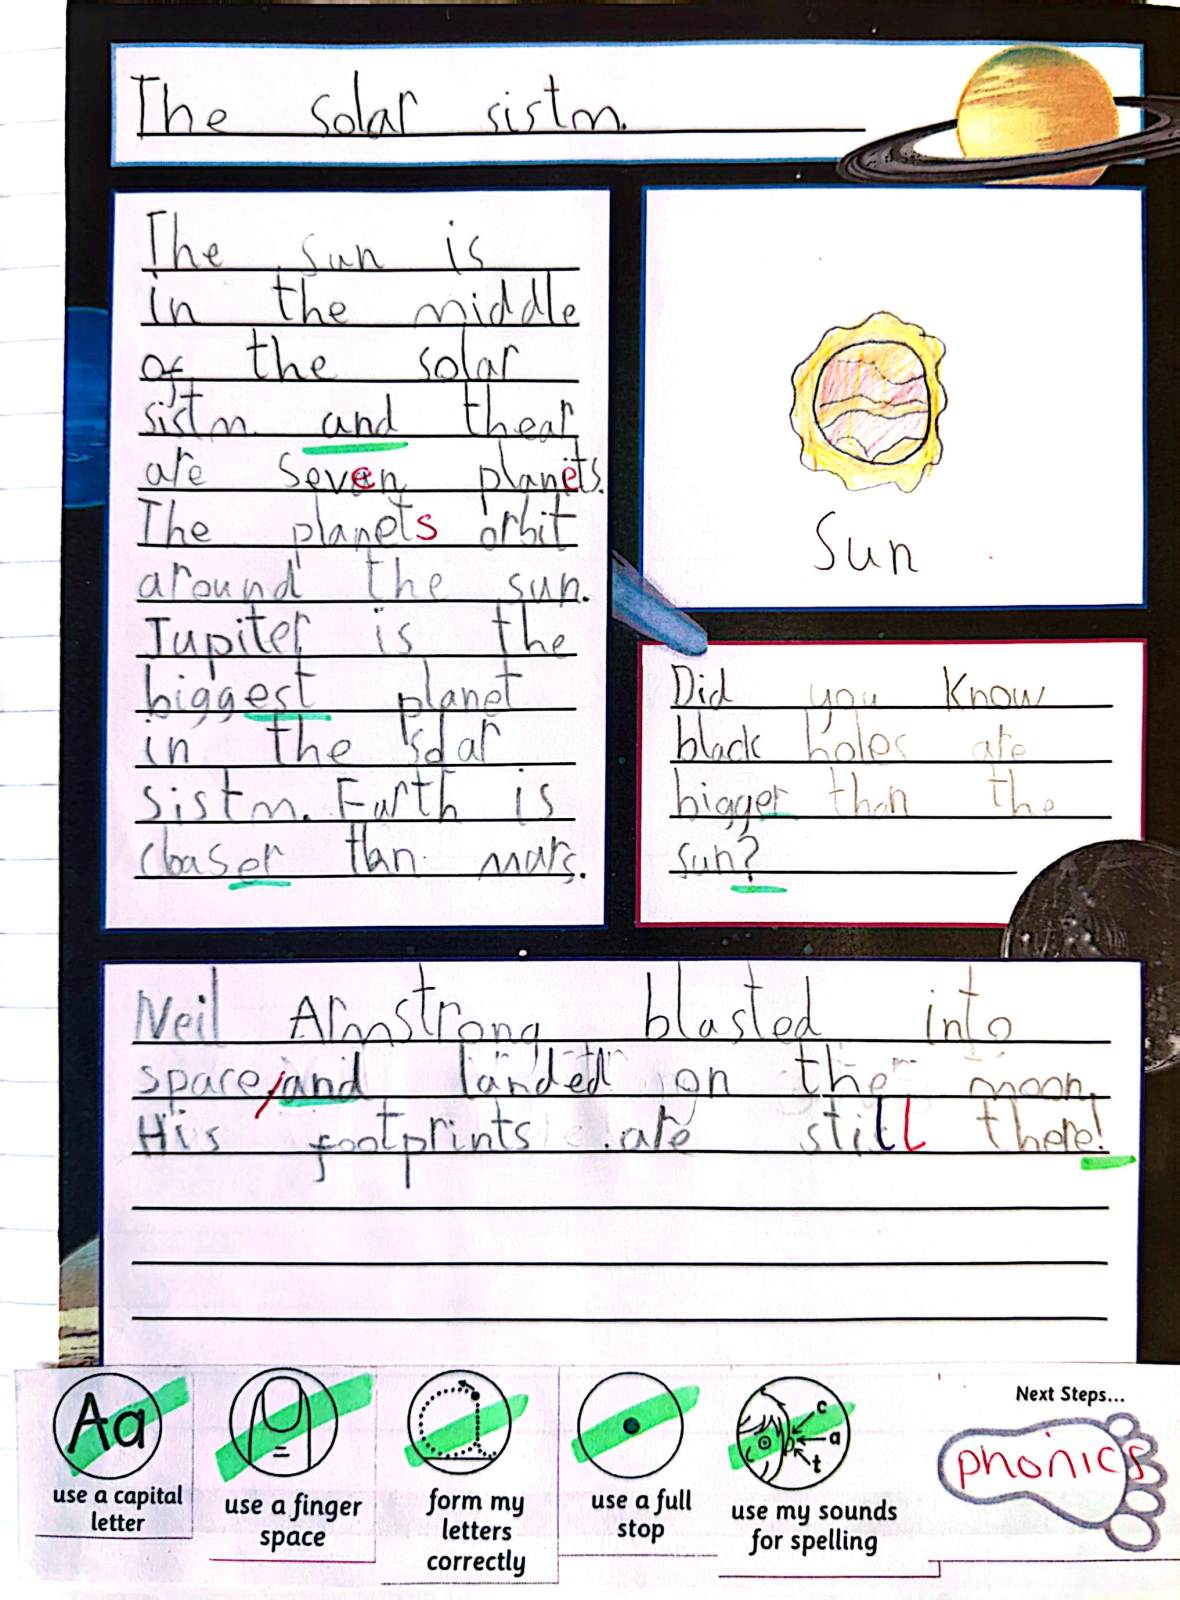 The solar sistm.
The sun is
in the middle
of the solar
sistm and thear
are seven planets.
The planets orbit
around the sun.
Jupiter is the
biggest planet
in the solar
sistm. Earth is
cloaser than mars.
Sun
Did you know
black holes are
bigger than the
sun?
Neil Armstrong blasted into
space, and landed on the moon.
His footprints are still there!
Aa
use a capital
letter
use a finger
space
form my
letters
correctly
use a full
stop
c
a
t
use my sounds
for spelling
Next Steps...
phonics